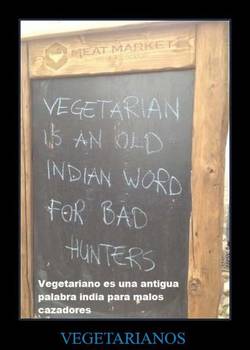 MEAT MARKET
VEGETARIAN
IS AN OLD
INDIAN WORD
FOR BAD
HUNTERS
Vegetariano es una antigua
palabra india para malos
cazadores
VEGETARIANOS